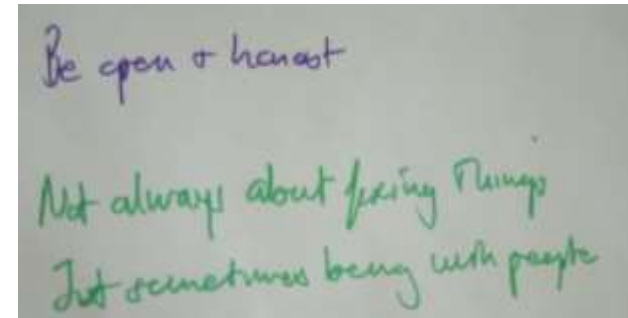 Be open & honest
Not always about fixing things
Just sometimes being with people